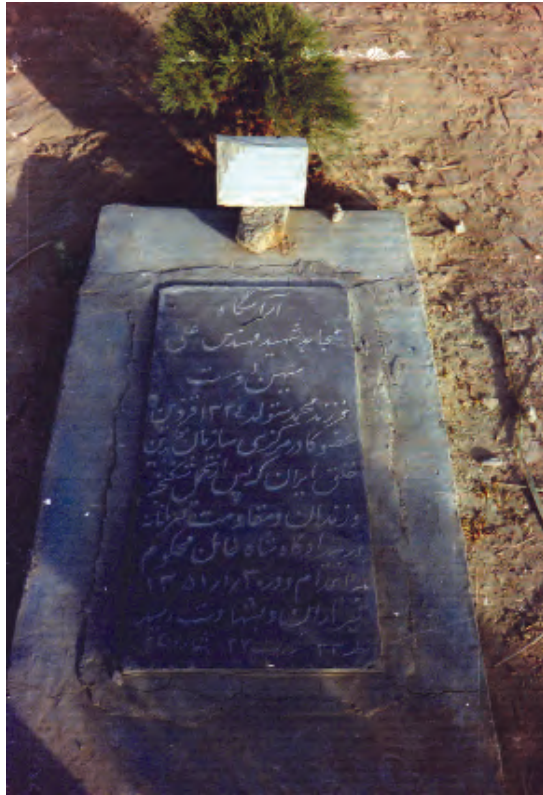 آرامگاه
مجاهد شهید مهندس علی
میهن دوست
فرزند محمد متولد ۱۳۲۴ قزوین
عضو کادر مرکزی سازمان مجاهدین
خلق ایران که پس از تحمل شکنجه
و زندان و مقاومت
در بیدادگاه شاه خائن محکوم
به اعدام و در ۳۰ر۱ر۱۳۵۱
تیرباران و بشهادت رسید
ردیف